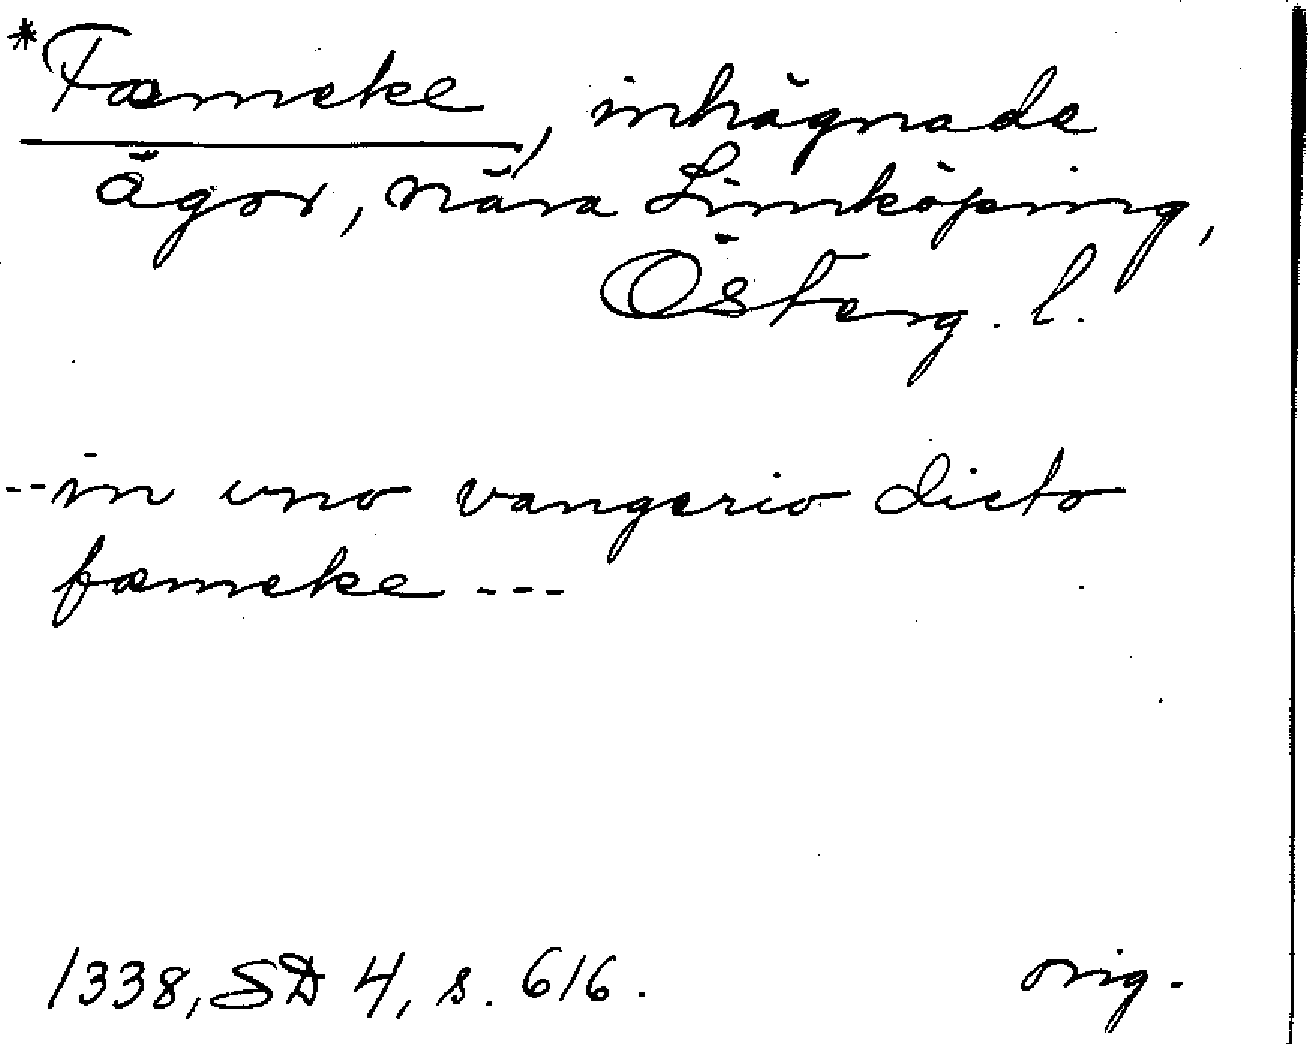 *Fæmcke, inhägnade
ägor, nära Linköping,
Österg. l.
--in uno vangerio dicto
fæmcke ---
1338, SD 4, s. 616.
orig.